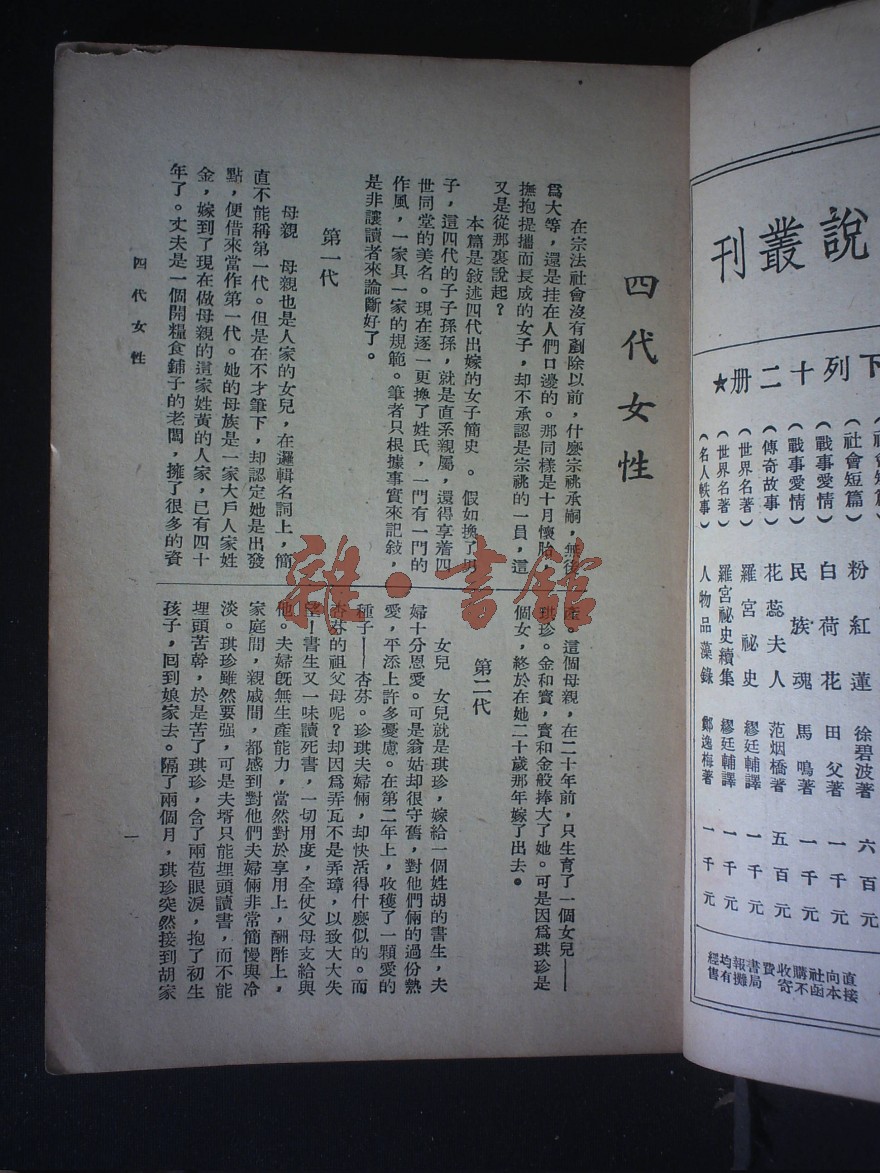 說叢刊
下列十二冊★
(社會短篇) 粉紅蓮 徐碧波著 六百元
(戰事愛情) 白荷花 田父著 一千元
(戰事愛情) 民族魂 馬鳴著 一千元
(傳奇故事) 花蕊夫人 范烟橋著 五百元
(世界名著) 羅宮祕史 繆廷輔譯 一千元
(世界名著) 羅宮祕史續集 繆廷輔譯 一千元
(名人軼事) 人物品藻錄 鄭逸梅著 一千元
直接
向本
社函
購不
收寄
費
書局
報攤
均有
經售
四代女性
在宗法社會沒有剷除以前,什麼宗祧承嗣,無後
爲大等,還是挂在人們口邊的。那同樣是十月懷胎,
撫抱提攜而長成的女子,却不承認是宗祧的一員,這
又是從那裏說起?
本篇是敍述四代出嫁的女子簡史 。 假如換了男
子,這四代的子子孫孫,就是直系親屬,還得享着四
世同堂的美名。現在逐一更換了姓氏,一門有一門的
作風,一家具一家的規範。筆者只根據事實來記敍,
是非讓讀者來論斷好了。
第一代
母親 母親也是人家的女兒,在邏輯名詞上,簡
直不能稱第一代。但是在不才筆下,却認定她是出發
點,便借來當作第一代。她的母族是一家大戶人家姓
金,嫁到了現在做母親的這家姓黃的人家,已有四十
年了。丈夫是一個開糧食鋪子的老闆,擁了很多的資
產。這個母親,在二十年前,只生育了一個女兒——
琪珍。金和寶,寶和金般捧大了她。可是因爲琪珍是
個女,終於在她二十歲那年嫁了出去。
第二代
女兒 女兒就是琪珍,嫁給一個姓胡的書生,夫
婦十分恩愛。可是翁姑却很守舊,對他們倆的過份熱
愛,平添上許多憂慮。在第二年上,收穫了一顆愛的
種子——杏芬。珍琪夫婦倆,却快活得什麼似的。而
杏芬的祖父母呢?却因爲弄瓦不是弄璋,以致大大失
望!書生又一味讀死書,一切用度,全仗父母支給與
他。夫婦旣無生產能力,當然對於享用上,酬酢上,
家庭間,親戚間,都感到對他們夫婦倆非常簡慢與冷
淡。琪珍雖然要强,可是夫壻只能埋頭讀書,而不能
埋頭苦幹,於是苦了琪珍,含了兩苞眼淚,抱了初生
孩子,囘到娘家去。隔了兩個月,琪珍突然接到胡家
四代女性
一
雜·書館